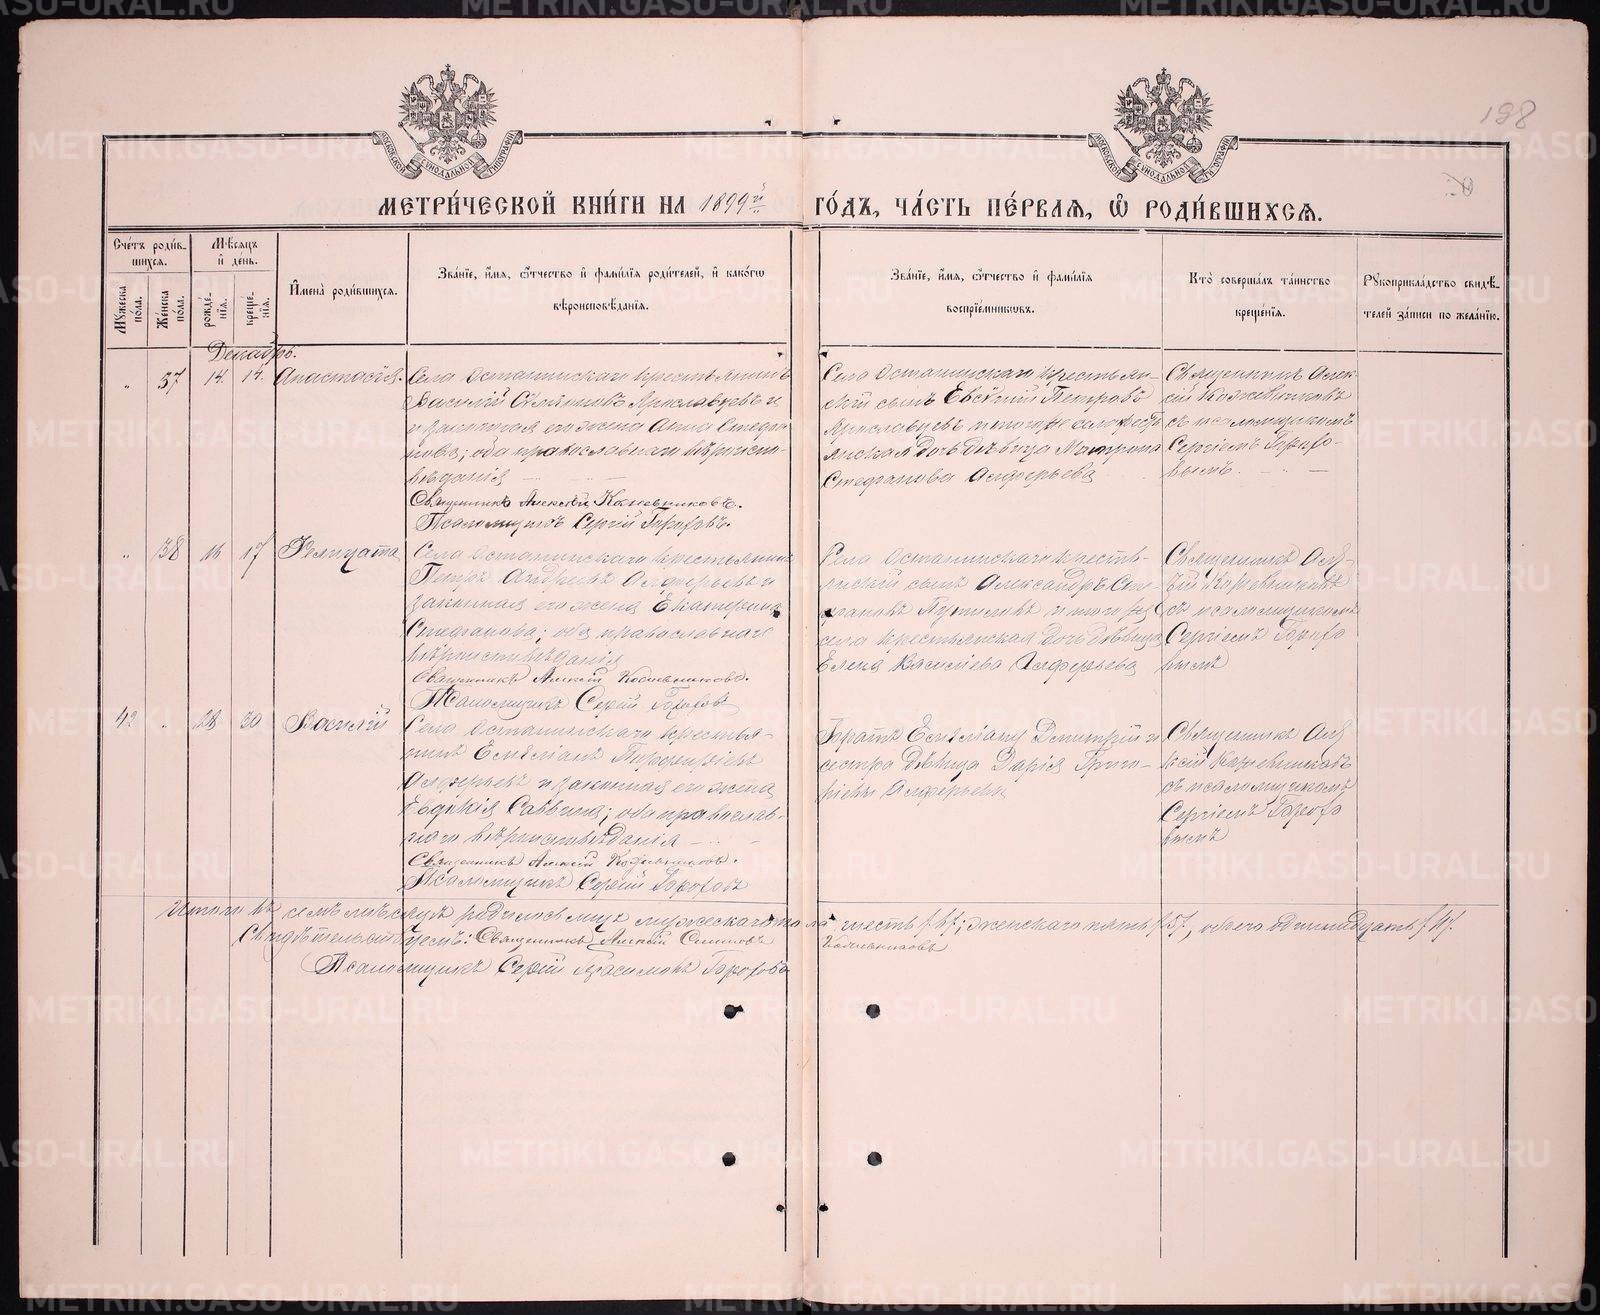 198
МЕТРИ́ЧЕСКОЙ КНИ́ГИ НА 1899й ГО́ДЪ, ЧА́СТЬ ПЕ́РВАЯ, Ѡ РОДИ́ВШИХСЯ.
Счетъ роди́в-
шихся.
Мѣсяцъ
и день.
Мужеска
пола.
Женска
пола.
рожде-
нія.
креще-
нія.
Имена роди́вшихся.
Зва́ніе, и́мя, ѻ́тчество и фами́лія роди́телей, и како́гѡ
вѣроисповѣ́данія.
Зва́ніе, и́мя, ѻ́тчество и фами́лія
воспріе́мниковъ.
Кто̀ соверша́лъ та́инство
креще́нія.
Рукоприкла́дство свидѣ́-
телей за́писи по жела́нію.
Декабрь.
„ 37 14. 14. Анастасія.
Села Останинскаго крестьянинъ
Василій Ярославцевъ и
законная его жена Анна Стефа
нова; оба православнаго вѣроиспо-
вѣданія
Священникъ Алексѣй Кожевниковъ.
Псаломщикъ Сергій Гороховъ.
Села Останинскаго крестьян-
скій сынъ Евсѣвій Петровъ
Ярославцевъ и того же села крест
янская дочь дѣвица Матрона
Стефанова Алферьева
Священникъ Алек-
сій Кожевниковъ
съ псаломщикомъ
Сергіемъ Горохо-
вымъ.
„ 38 16 17 Фелицата
Села Останинскаго крестьянинъ
Петръ Андреевъ Алферьевъ и
законная его жена Екатерина
Стефанова; оба православнаго
вѣроисповѣданія
Священникъ Алексѣй Кожевниковъ.
Псаломщикъ Сергій Гороховъ
Села Останинскаго кресть-
янскій сынъ Александръ Сте
фановъ и того же
села крестьянская дочь дѣвица
Елена Василіева Алферьева
Священникъ Але-
сій Кожевниковъ
съ псаломщикомъ
Сергіемъ Горохо
вымъ
42 „ 28 30 Василій
Села Останинскаго крестья-
нинъ Емеліанъ Порфиріевъ
Алферьевъ и законная его жена
Евдокія Саввина; оба православ-
наго вѣроисповѣданія
Священникъ Алексѣй Кожевниковъ.
Псаломщикъ Сергій Гороховъ
Братъ Димитрій и
сестра дѣвица Дарія Григо-
рьевы Алферьевы
Священникъ Але
ксій Кожевниковъ
съ псаломщикомъ
Сергіемъ Горохо
вымъ
Итого въ семъ мѣсяцѣ родилось лицъ мужескаго пола шесть /6/; женскаго пять /5/, обоего одиннадцать /11/.
Свидѣтельствуемъ: Священникъ Алексѣй Симеоновъ Кожевниковъ
Псаломщикъ Сергій Герасимовъ Гороховъ